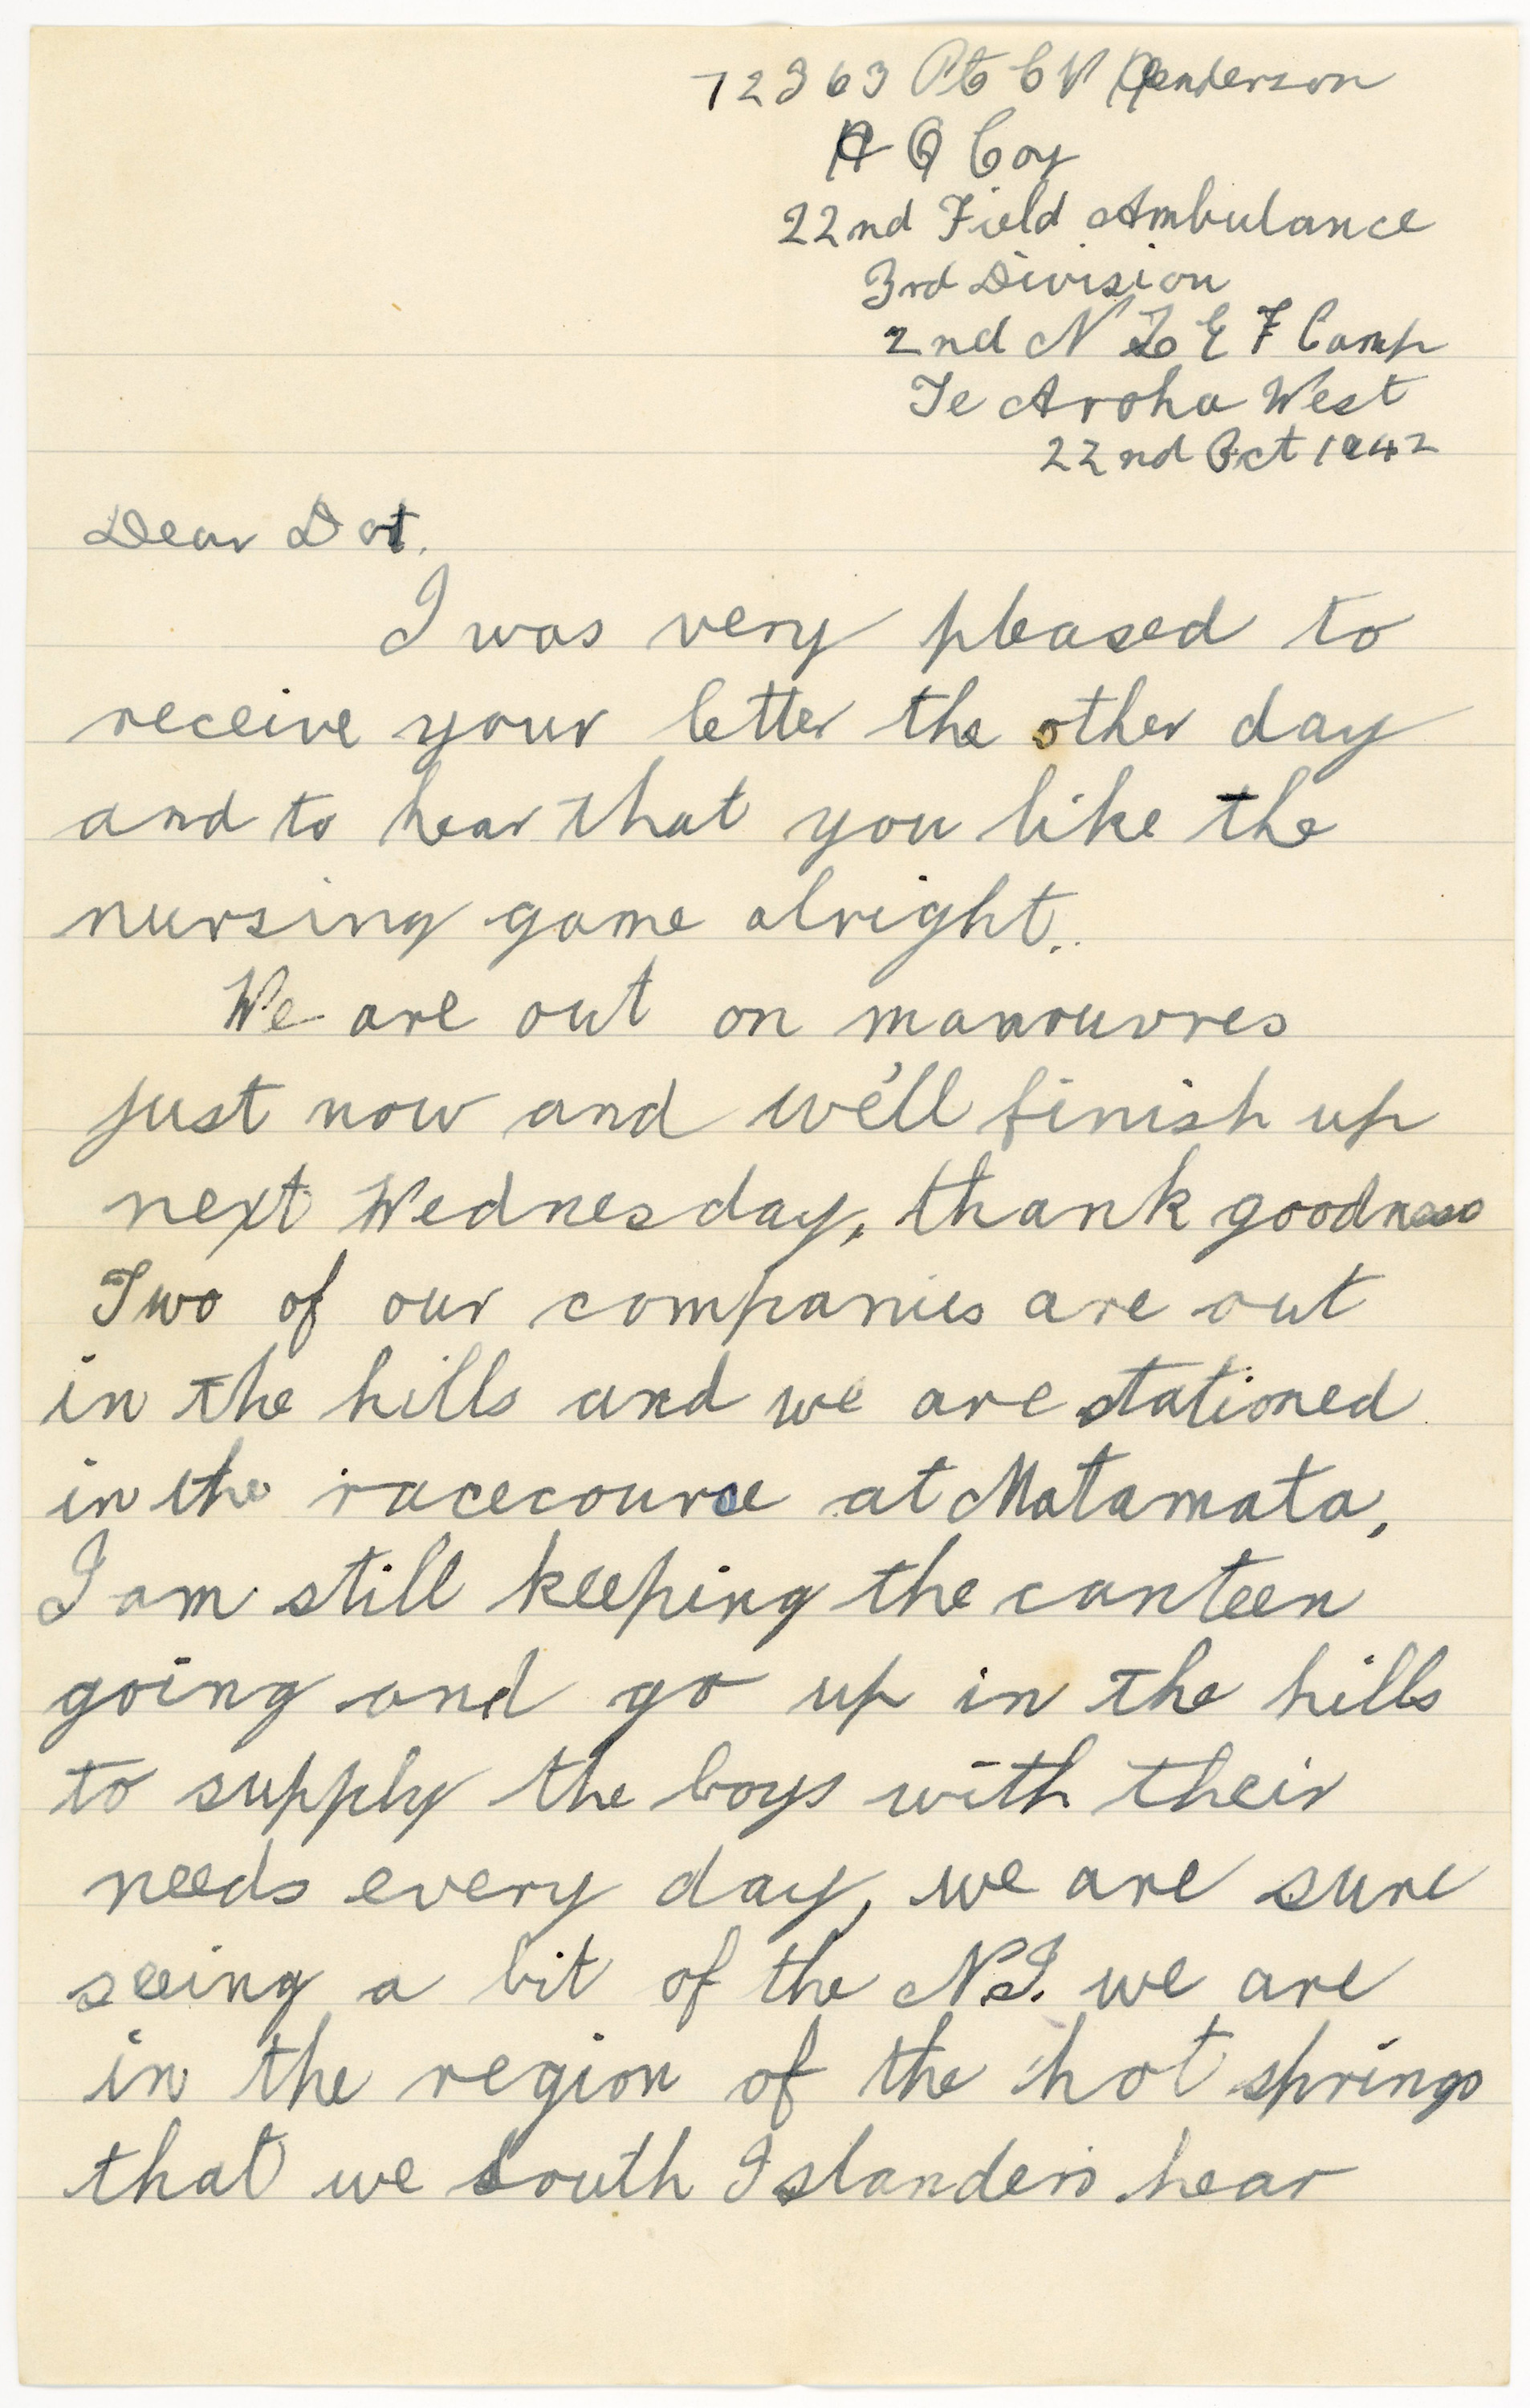 72363 Pte C V Henderson
H Q Coy
22nd Field Ambulance
3rd Division
2nd N Z E F Camp
Te Aroha West
22nd Oct 1942
Dear Dot.
I was very pleased to
receive your letter the other day
and to hear that you like the
nursing game alright.
We are out on manouvres
just now and we'll finish up
next Wednesday, thank goodness
Two of our companies are out
in the hills and we are stationed
in the racecourse at Matamata,
I am still keeping the canteen
going and go up in the hills
to supply the boys with their
needs every day, we are sure
seeing a bit of the N.I. we are
in the region of the hot springs
that we South Islanders hear